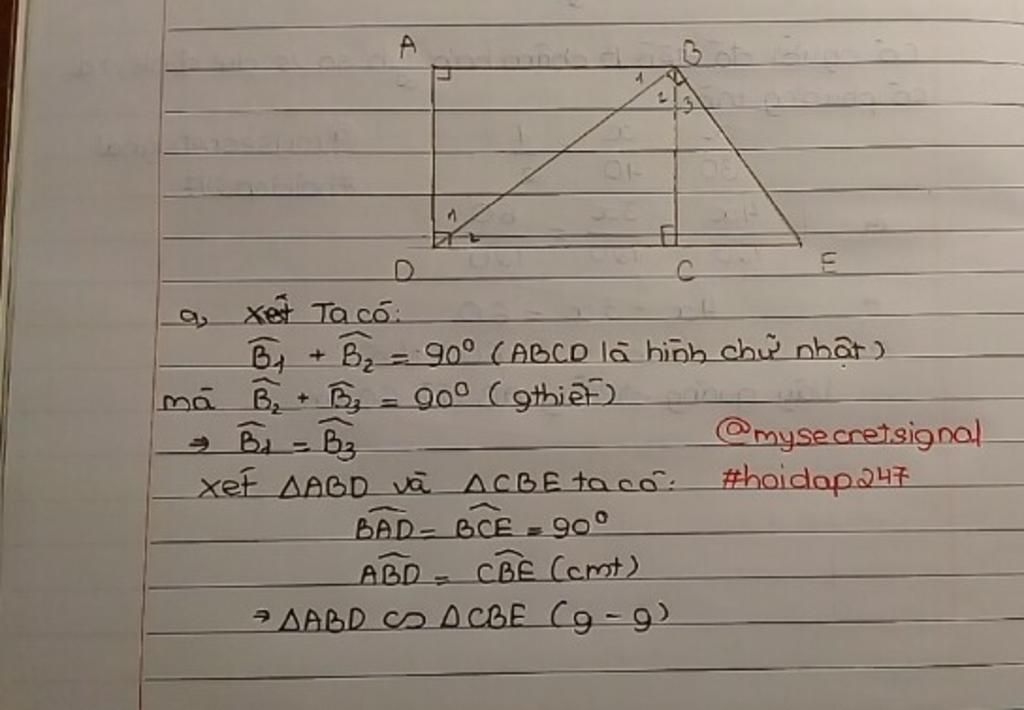 A
B
1
2
3
1
2
D
C
E
a, xét Ta có:
B̂1 + B̂2 = 90° (ABCD là hình chữ nhật)
mà B̂2 + B̂3 = 90° (gthiết)
⇒ B̂1 = B̂3
@mysecretsignal
xét ΔABD và ΔCBE ta có:
#hoidap247
BÂD = BĈE = 90°
AB̂D = CB̂E (cmt)
⇒ ΔABD ∽ ΔCBE (g-g)